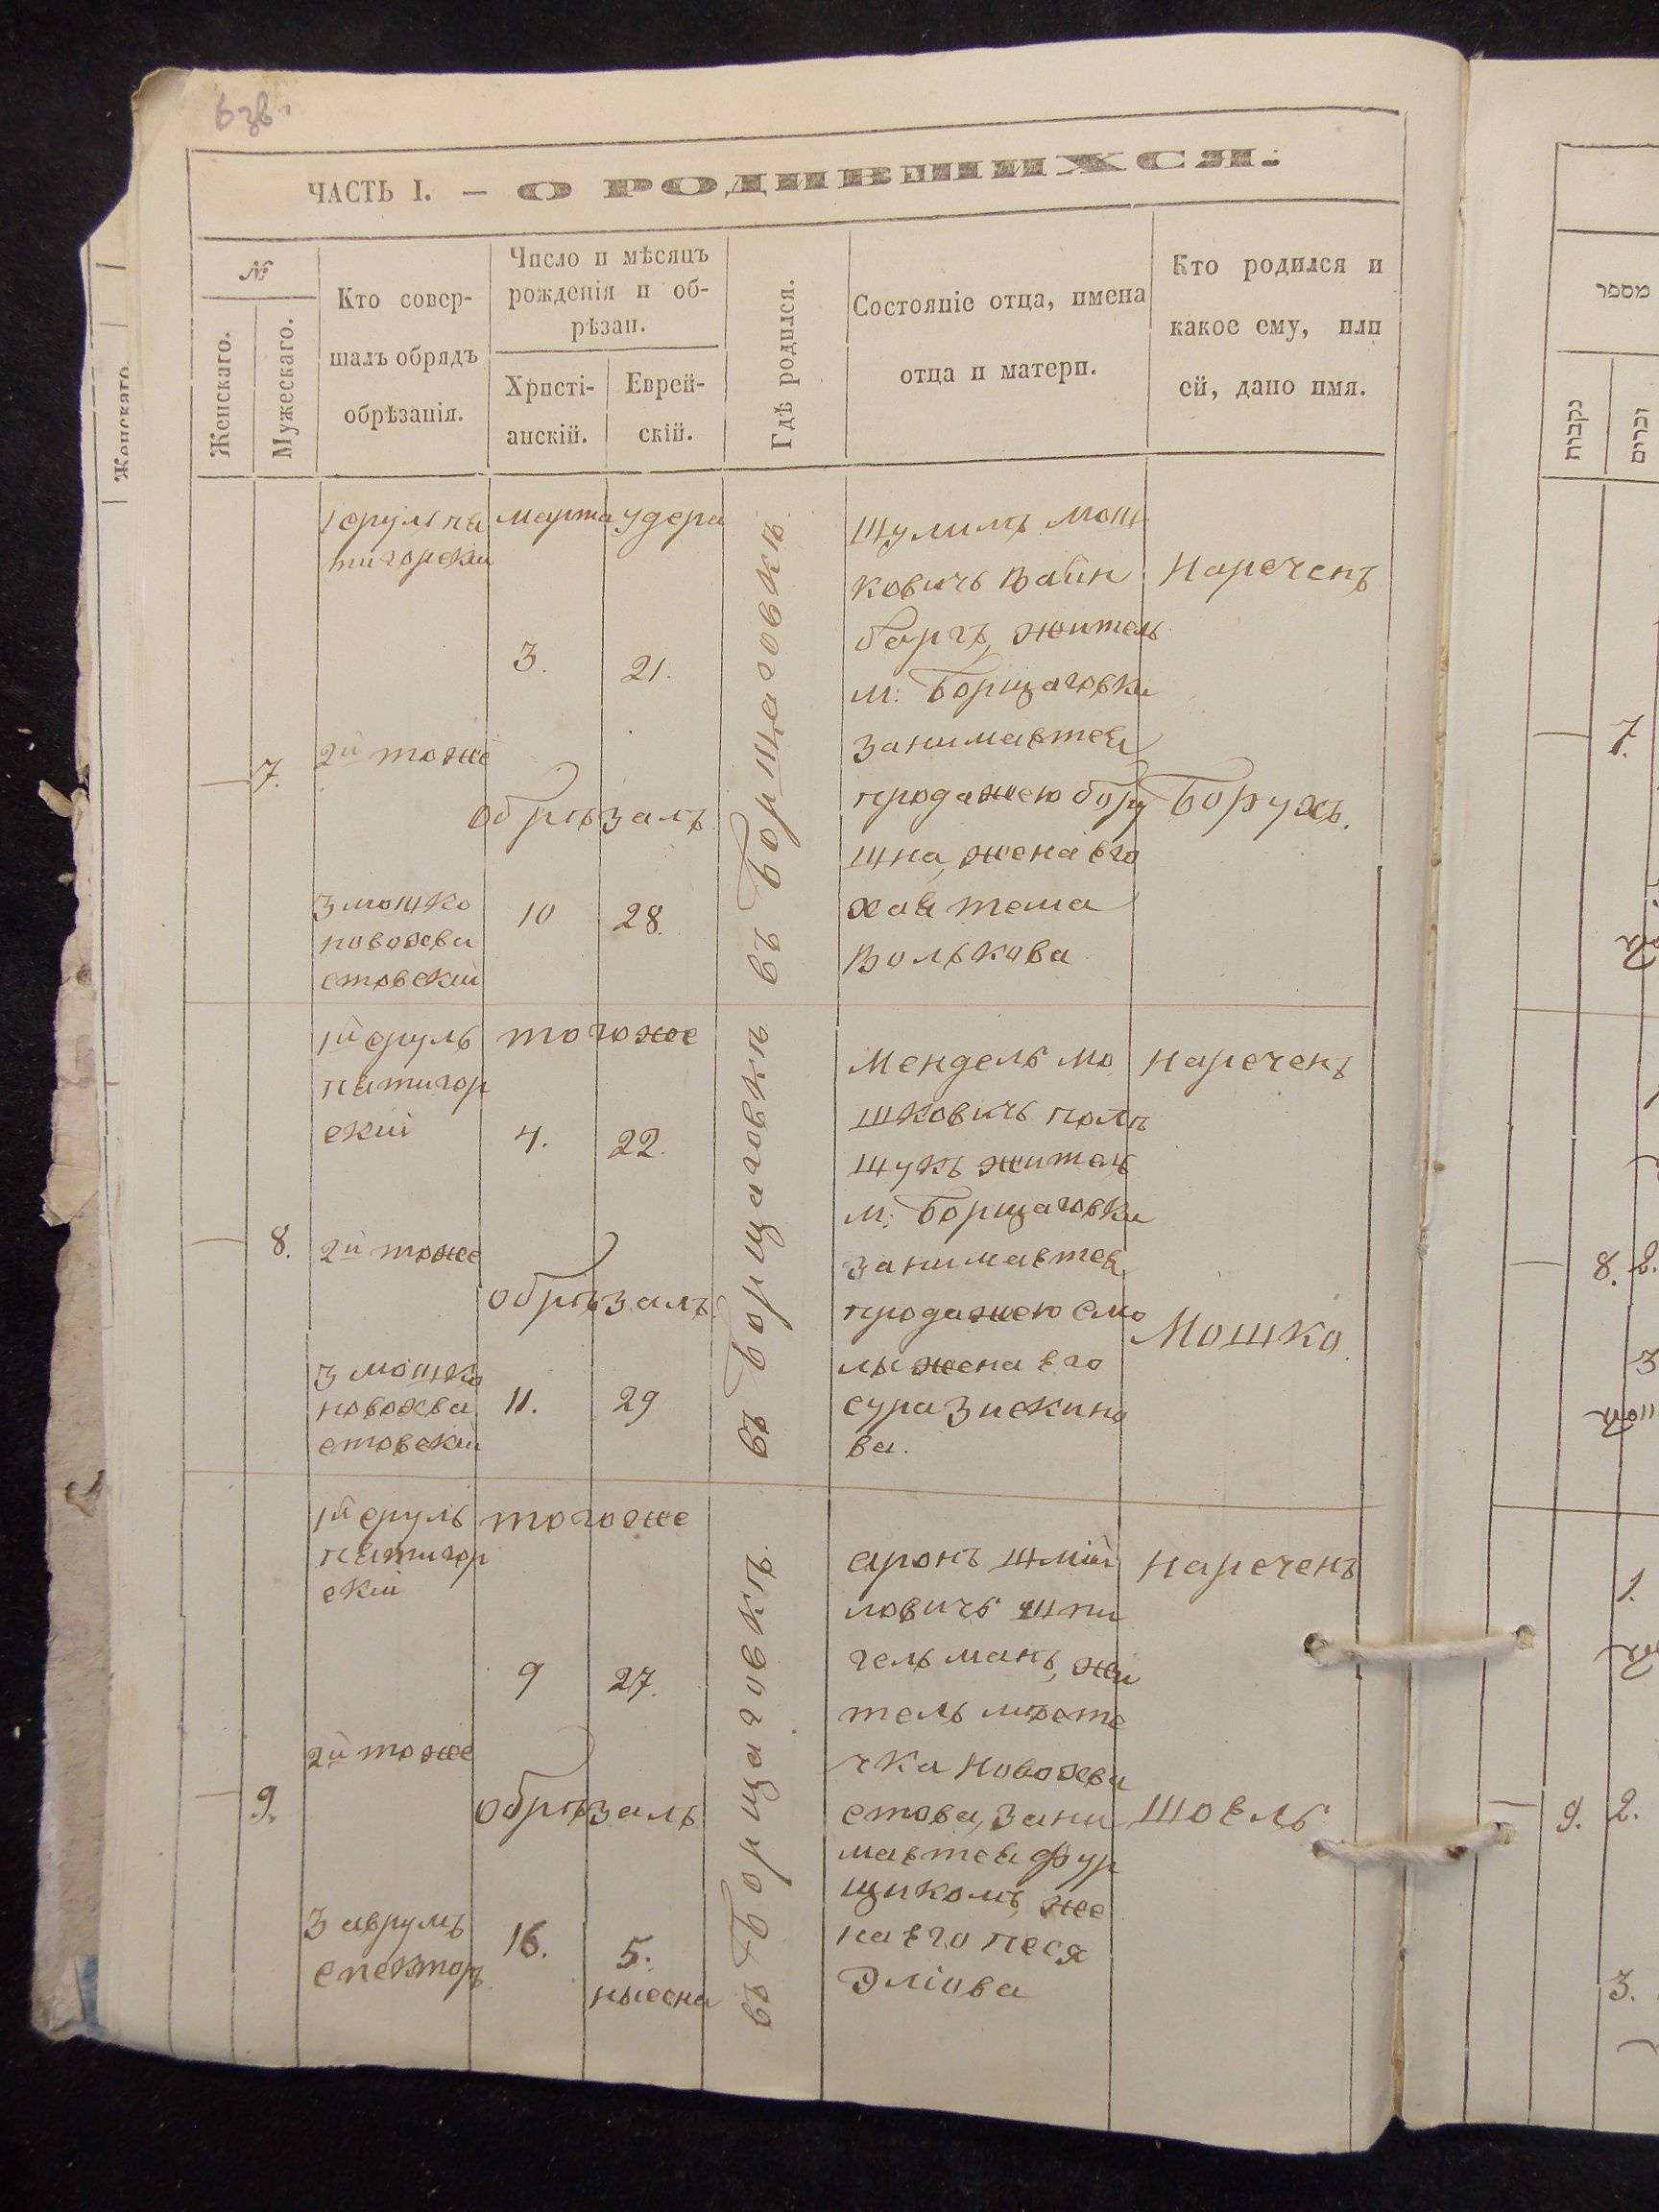 6 зв.
ЧАСТЬ I. — О РОДИВШИХСЯ.
№
Женскаго.
Мужескаго.
Кто совер-
шалъ обрядъ
обрѣзанія.
Число и мѣсяцъ
рожденія и об-
рѣзан.
Христі-
анскій.
Еврей-
скій.
Гдѣ родился.
Состояніе отца, имена
отца и матери.
Кто родился и
какое ему, или
ей, дано имя.
— 7.
1 срулъ пя
тигорски
2й тоже
3 мошко
новохва
стовскій
марта
3.
обрѣзалъ
10
удера
21.
28.
въ Борщаговкѣ.
Шулимъ мош
ковичъ Вайн
бергъ, житель
м: Борщаговки
занимается
продажею бору
шна, жена его
хая тема
Волькова
Нареченъ
Борухъ.
— 8.
1й сруль
пятигор
скій
2й тоже
3 мошко
новохва
стовскій
тогоже
4. 22.
обрѣзалъ
11. 29
въ Борщаговкѣ
Мендель мо
шковичъ полѣ
щукъ житель
м: Борщаговки
занимается
продажею смо
лы жена его
сура Зискино
ва.
нареченъ
Мошко.
— 9.
1й сруль
пятигор
скій
2й тоже
3 аврумъ
спекторъ
тогоже
9 27.
обрѣзалъ
16. 5.
ныесна
въ Борщаговкѣ.
аронъ шмій
ловичъ шпи
гельманъ, жи
тель мѣсте
чка Новохва
стова, зани
мается фур
щикомъ, же
на его песя
Эліова
нареченъ
Шоель
מספר
נקבות
זכרים
— 7.
— 8. 2.
3
1.
— 9. 2.
3.
Женскаго.